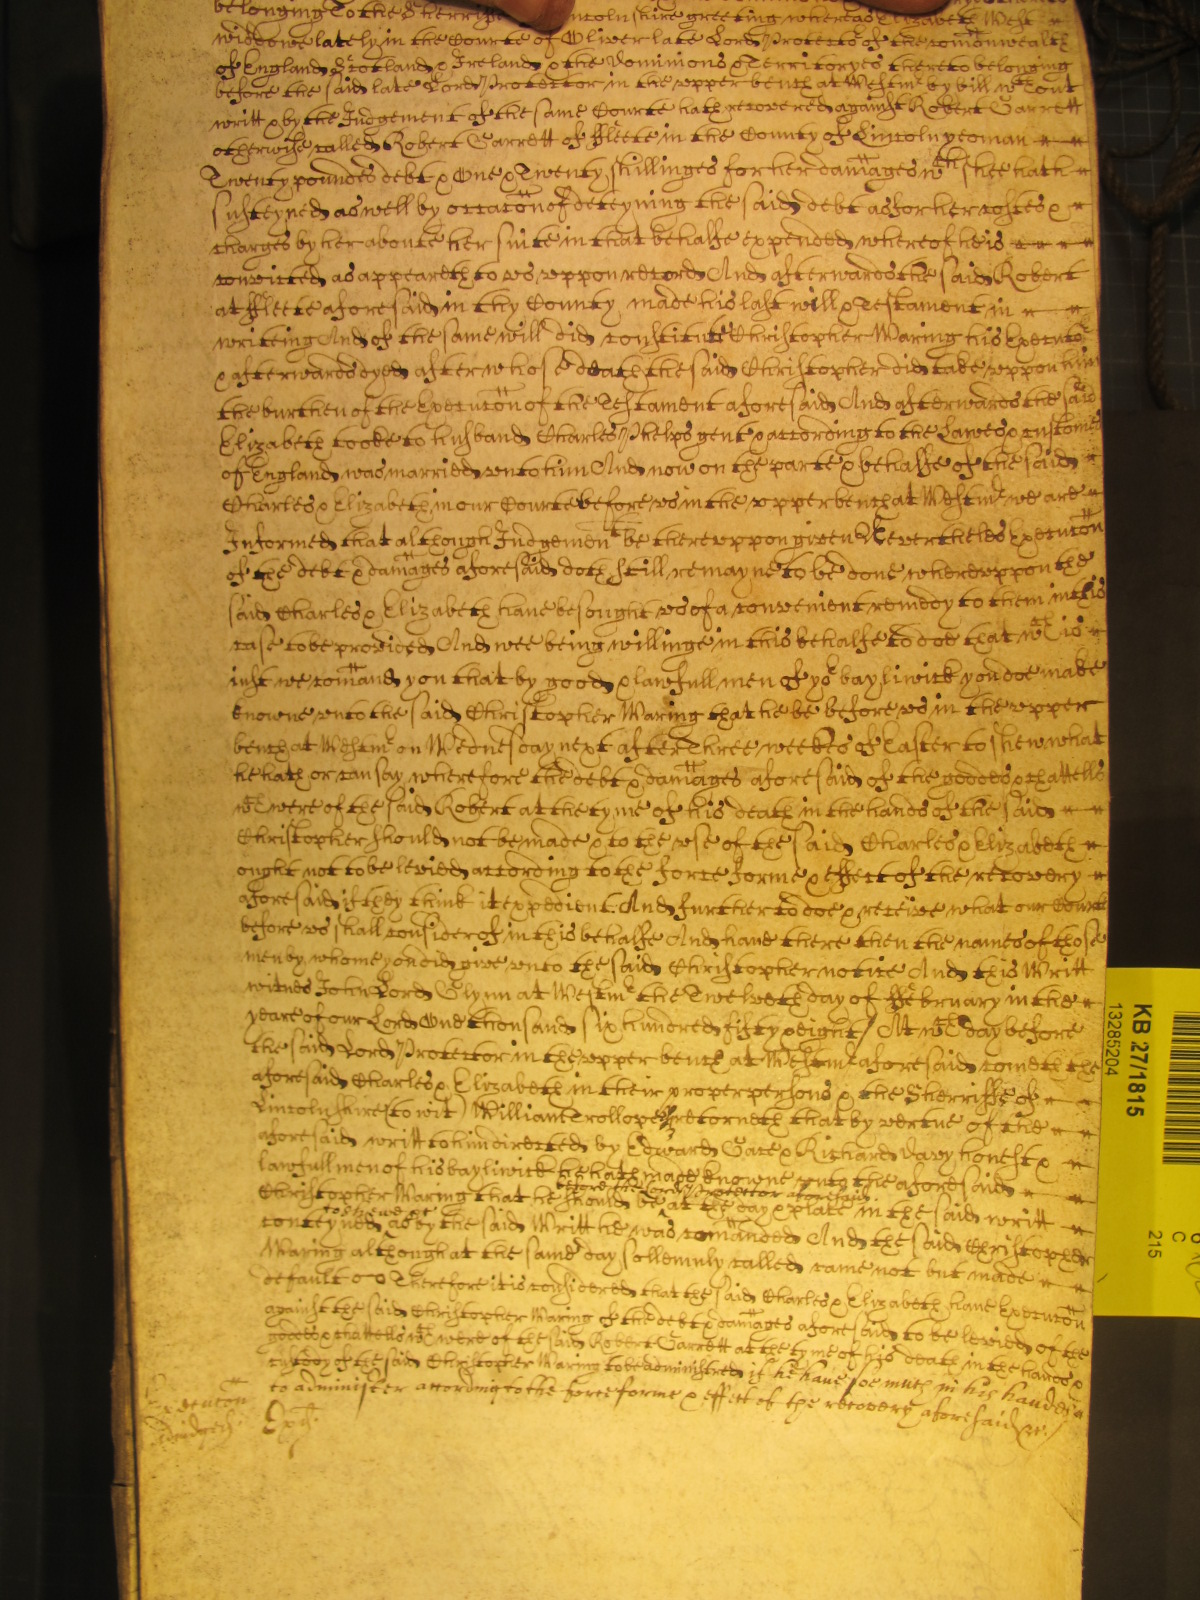 belonging To the Sherriffe of Lincolnshire greeting whereas Elizabeth West
widdowe lately in the Courte of Oliver late Lord Protector of the Comonwealth
of England Scotland & Ireland & the Dominions & Territoryes thereto belonging
before the said late Lord Protector in the upper bench at Westmr by bill wthout
writt & by the Judgement of the same Courte hath recovered against Robert Garrett
otherwise called Robert Garrett of Fleete in the County of Lincoln yeoman
Twenty poundes debt & One & Twenty shillinges for her damages wch shee hath
susteyned as well by occacon of deteyning the said debt as for her costes &
charges by her aboute her suite in that behalfe expended whereof he is
convicted as appeareth to us uppon record And afterwards the said Robert
at Fleete aforesaid in thy County made his last will & Testament in
writeing And of the same will did constitute Christopher Waring his Executor
& afterwards dyed after whose death the said Christopher did take uppon him
the burthen of the Execucon of the Testament aforesaid And afterwards the said
Elizabeth tooke to husband Charles Phelps gent & according to the Lawes & customes
of England was married unto him And now on the parte & behalfe of the said
Charles & Elizabeth in our Courte before us in the upper bench at Westmr we are
Informed that although Judgement be thereuppon given Neverthelesse Execucon
of the debt & damages aforesaid doth still remayne to be done whereuppon the
said Charles & Elizabeth have besought us of a convenient remedy to them in this
case to be provided And wee being willinge in this behalfe to doe that wch is
just we comand you that by good & lawfull men of yor bayliwick you doe make
knowne unto the said Christopher Waring that he be before us in the upper
bench at Westmr on Wednesday next after Three weekes of Easter to shew what
he hath or can say wherefore the debt & damages aforesaid of the goodes & chattells
wch were of the said Robert at the tyme of his death in the hands of the said
Christopher should not be made & to the use of the said Charles & Elizabeth
ought not to be levied according to the force forme & effect of the recovery
aforesaid if they think it expedient. And further to doe & receive what our Courte
before us shall consider of in this behalfe And have there then the names of those
men by whome you did give unto the said Christopher notice And this Writt
witnes John Lord Glynn at Westmr the Twelveth day of February in the
yeare of our Lord One thousand six hundred fifty & eight / At wch day before
the said Lord Protector in the upper bench at Westmr aforesaid cometh the
aforesaid Charles & Elizabeth in their proper persons & the Sherriffe of
Lincolnshire (to wit) William Trollope retorneth that by vertue of the
aforesaid writt to him directed by Edward Gate & Richard Davy honest &
lawfull men of his bayliwick he hath made knowne unto the aforesaid
before the Lord Protector aforesaid
Christopher Waring that he should be at the day & place in the said writt
to shewe &c
conteyned as by the said Writt he was comanded And the said Christopher
Waring although at the same day sollemnly called came not but made
default Therefore it is considered that the said Charles & Elizabeth have Execucon
against the said Christopher Waring of the debt & damages aforesaid to be levied of the
goodes & chattells wch were of the said Robert Garrett at the tyme of his death in the hands &
custody of the said Christopher Waring to be administred if he have soe much in his handes
to administer according to the force forme & effect of the recovery aforesaid &c /
Execucon
KB 27/1815
13285204
215
C